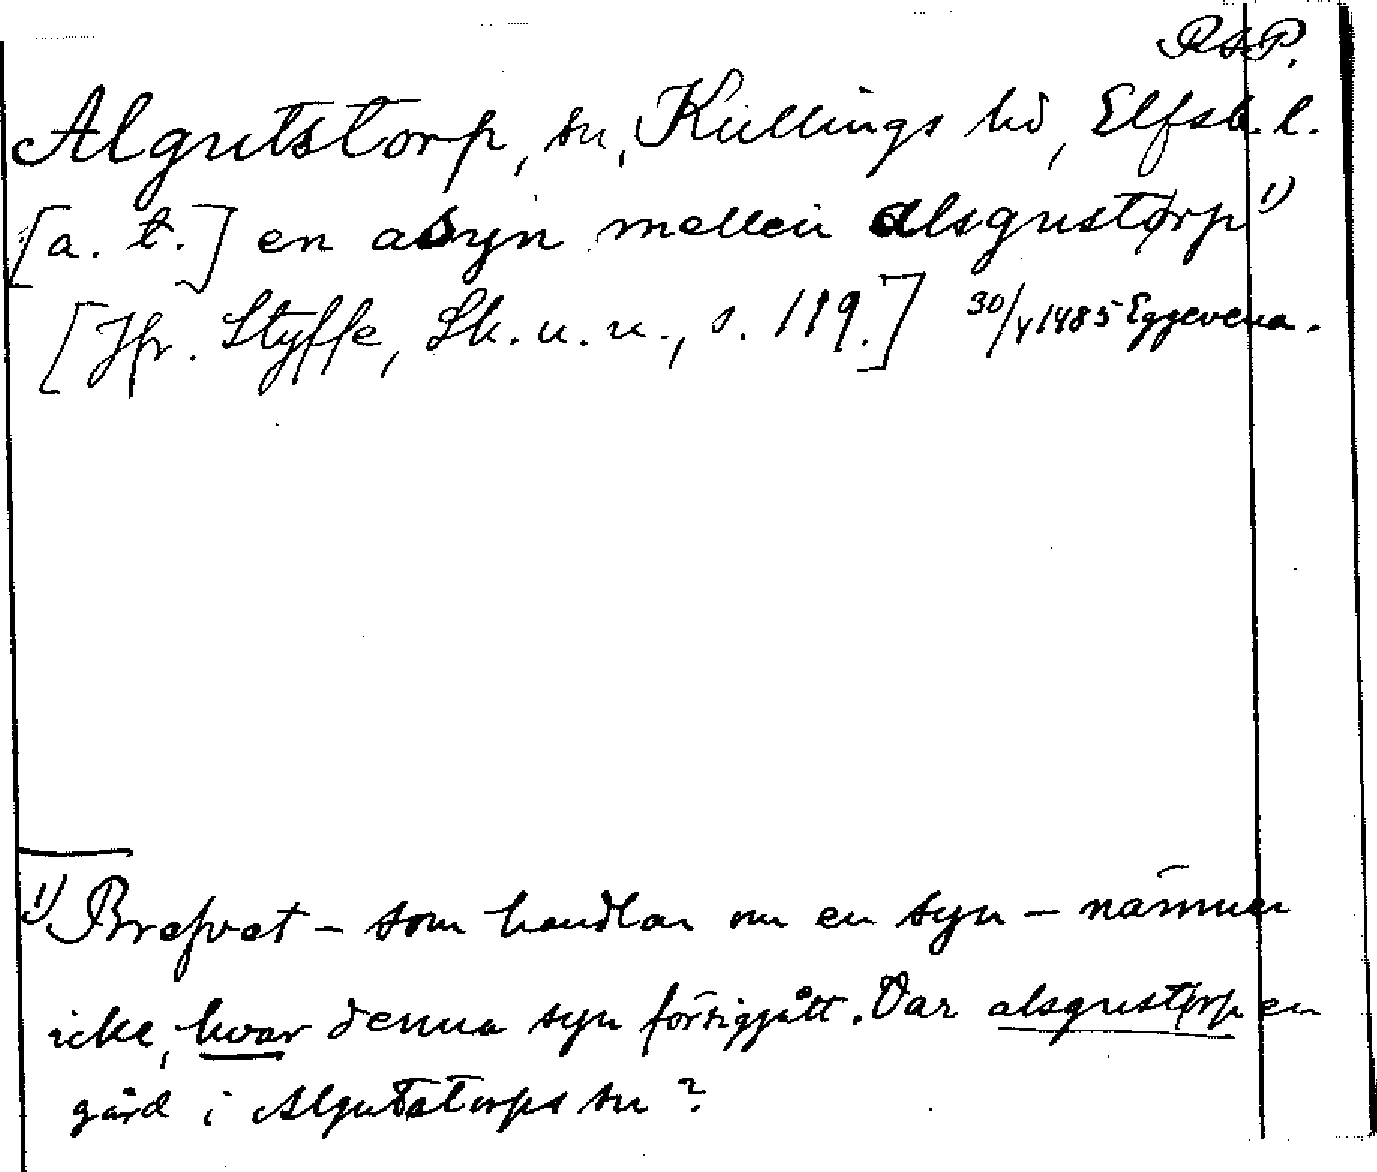 RAP.
Algutstorp, sn, Kullings hd, Elfsb. l.
[a. t.] en asyn mellen alsgustørp 1)
[Jfr. Styffe, Sk. u. u., s. 119.] 30/4 1485 Eggevena.
1) Brefvet – som handlar om en syn – nämner
icke, hvar denna syn försiggått. Var alsgustørp en
gård i Algutstorps sn?